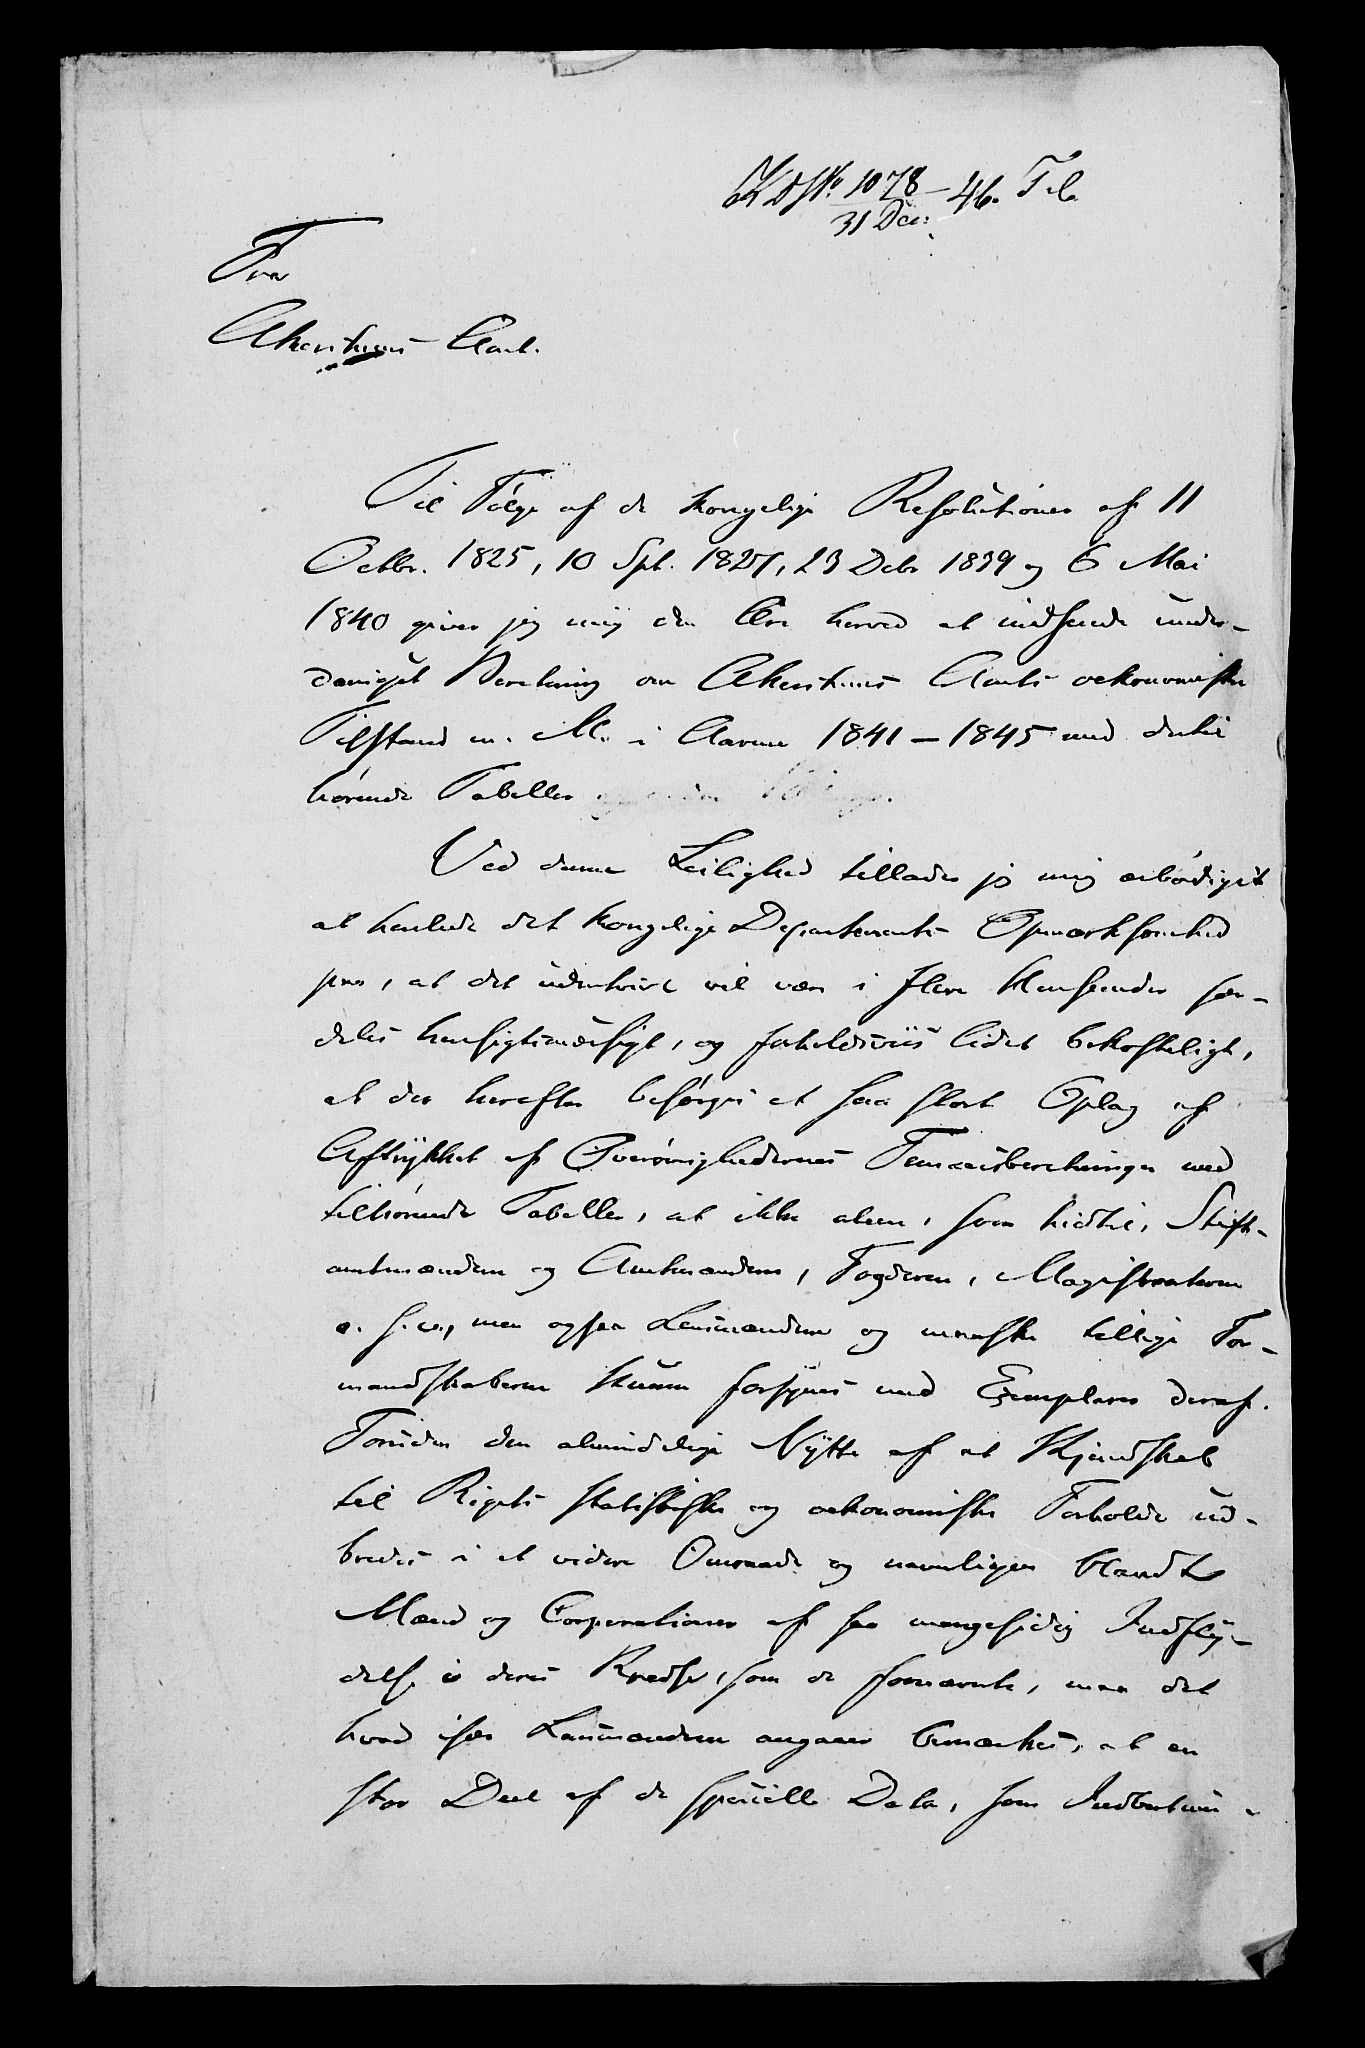 No 1078 – 46.
31 Dec:
Fra
Akershuus Amt.
Til Følge af de kongelige Resolutioner af 11
Octbr. 1825, 10 Spt. 1827, 23 Debr 1839 og 6 Mai
1840 giver jeg mig den Ære herved at indsende under-
danigst Beretning om Akershuus Amts oekonomiske
Tilstand m. M. i Aarene 1841 – 1845 med dertil
hørende Tabeller
Ved denne Leilighed tillader jeg mig ærbødigst
at henlede det kongelige Departements Opmærksomhed
paa, at det udentvivl vil være i flere Henseender sær-
deles hensigtsmæssigt, og forholdsviis lidet bekosteligt,
at der herefter besørges et saa stort Oplag af
Aftrykket af Øvrighedernes Femaarsberetninger med
tilhørende Tabeller, at ikke alene, som hidtil, Stift-
amtmændene og Amtmændene, Fogderne, Magistraterne
o. s. v., men ogsaa Lensmændene og maaske tillige For-
mandskaberne kunne forsynes med Exemplarer deraf.
Foruden den almindelige Nytte af at Kjendskab
til Rigets statistiske og oekonomiske Forholde ud-
bredes i et videre Omraade og navnligen blandt
Mænd og Corporationer af saa mangesidig Indfly-
delse i deres Kredse, som de fornævnte, maa det
hvad især Lensmændene angaaer bemærkes, at en
stor Deel af de specielle Data, som Indberetnin-